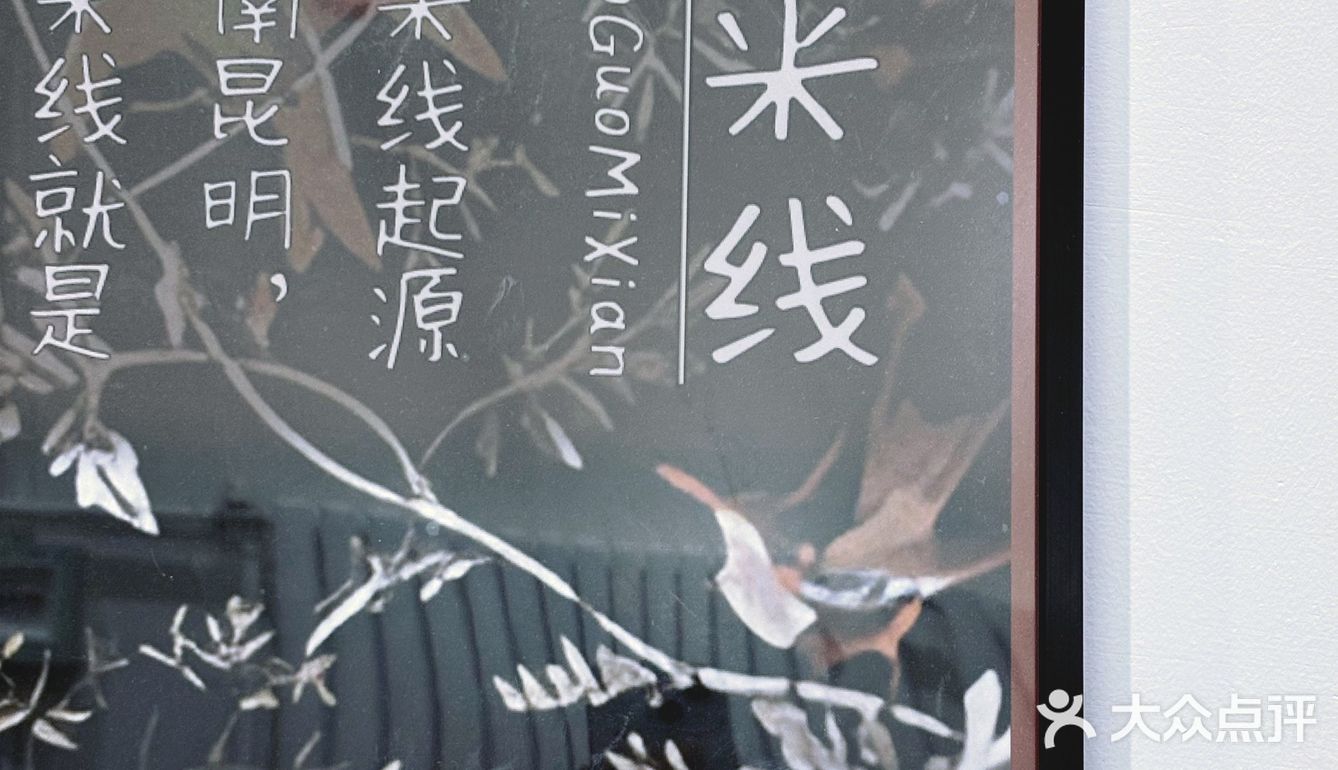 米线
GuoMiXian
米线起源
南昆明，
米线就是
大众点评